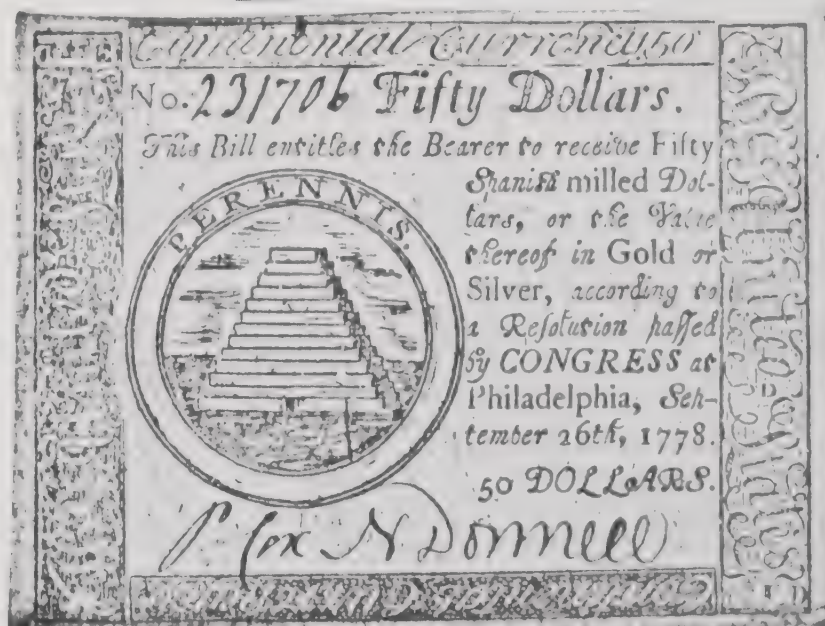 Continental Currency 50
No. 231706 Fifty Dollars.
This Bill entitles the Bearer to receive Fifty
Spanish milled Dol-
lars, or the Value
thereof in Gold or
Silver, according to
a Reſolution paſſed
by CONGRESS at
Philadelphia, Sep-
tember 26th, 1778.
50 DOLLARS.
PERENNIS.
P Cox N Donnell
The United States